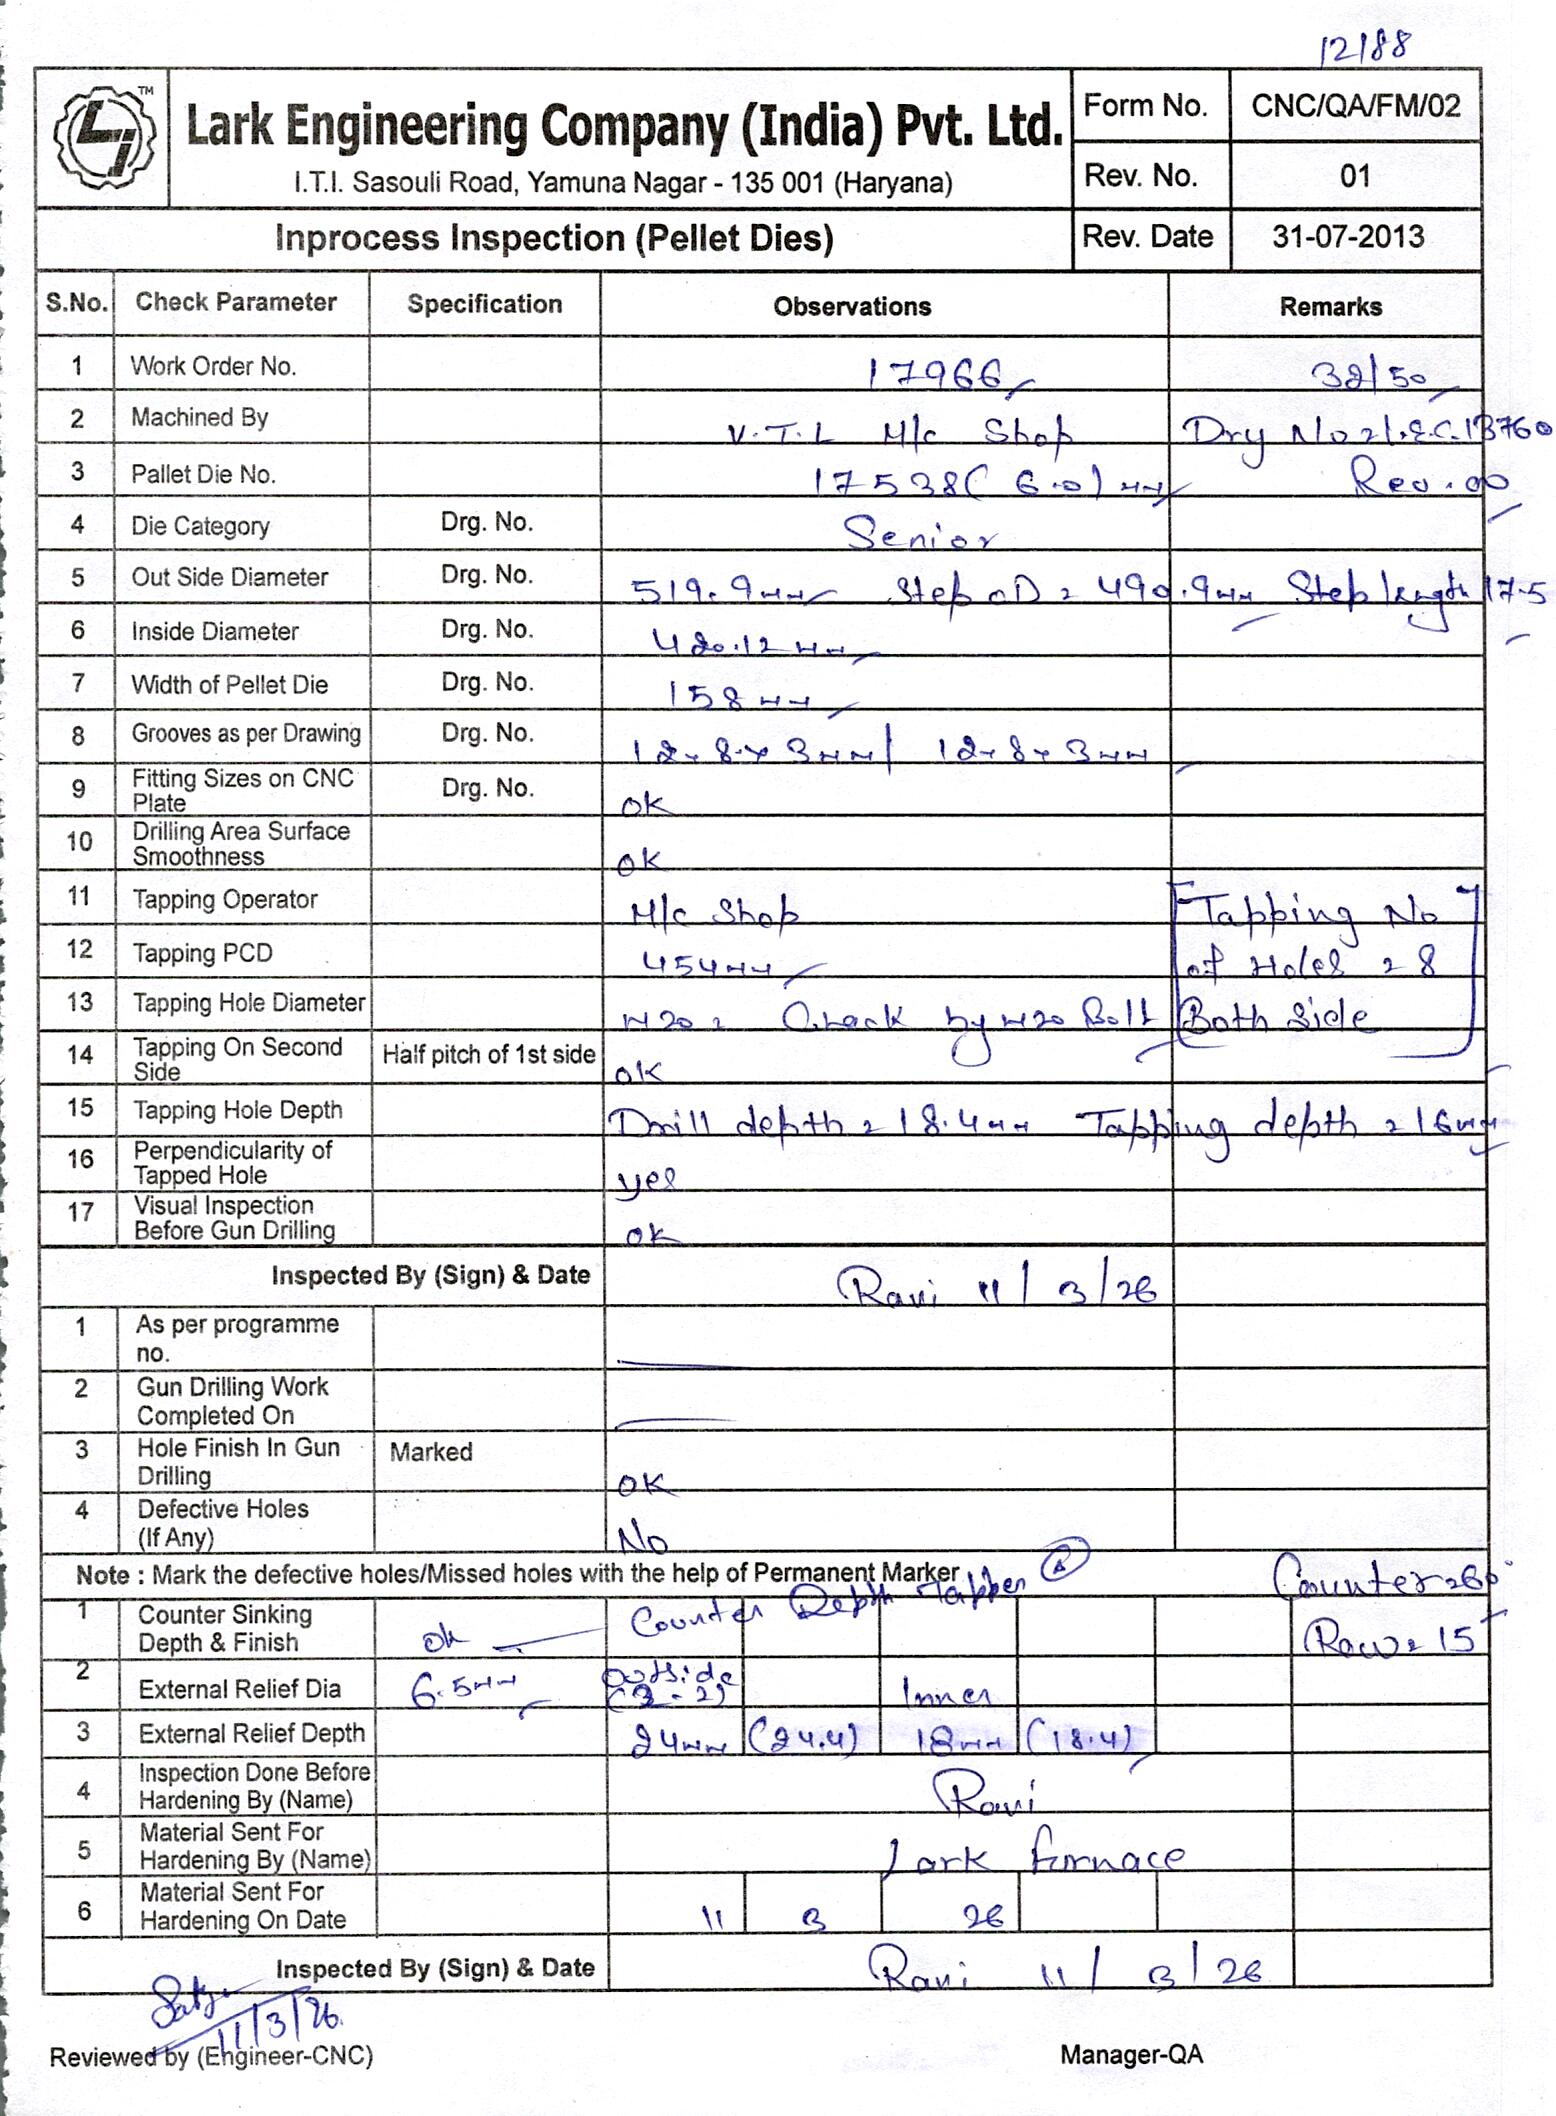 12188
TM
Lark Engineering Company (India) Pvt. Ltd.
I.T.I. Sasouli Road, Yamuna Nagar - 135 001 (Haryana)
Form No. CNC/QA/FM/02
Rev. No. 01
Inprocess Inspection (Pellet Dies) Rev. Date 31-07-2013
S.No. Check Parameter Specification Observations Remarks
1 Work Order No. 17966 32/50
2 Machined By V.T.L M/c Shop Drg No = L.E.C. 13760
3 Pallet Die No. 17538 (6.0) mm Rev. 00
4 Die Category Drg. No. Senior
5 Out Side Diameter Drg. No. 519.9mm Step OD = 490.9mm Step length 17.5
6 Inside Diameter Drg. No. 420.12 mm
7 Width of Pellet Die Drg. No. 158 mm
8 Grooves as per Drawing Drg. No. 12 x 8 x 3mm / 12 x 8 x 3mm
9 Fitting Sizes on CNC Plate Drg. No. ok
10 Drilling Area Surface Smoothness ok
11 Tapping Operator M/c Shop Tapping No
12 Tapping PCD 454mm of Holes = 8
13 Tapping Hole Diameter M20 = Check by M20 Bolt Both Side
14 Tapping On Second Side Half pitch of 1st side ok
15 Tapping Hole Depth Drill depth = 18.4mm Tapping depth = 16mm
16 Perpendicularity of Tapped Hole yes
17 Visual Inspection Before Gun Drilling ok
Inspected By (Sign) & Date Ravi 11/3/26
1 As per programme no.
2 Gun Drilling Work Completed On
3 Hole Finish In Gun Drilling Marked ok
4 Defective Holes (If Any) No
Note : Mark the defective holes/Missed holes with the help of Permanent Marker
Counter = 60°
1 Counter Sinking Depth & Finish ok Counter Depth Tapper Row = 15
2 External Relief Dia 6.5mm Outside (2-2) Inner
3 External Relief Depth 24mm (24.4) 18mm (18.4)
4 Inspection Done Before Hardening By (Name) Ravi
5 Material Sent For Hardening By (Name) Lark furnace
6 Material Sent For Hardening On Date 11 3 26
Inspected By (Sign) & Date Ravi 11/3/26
11/3/26
Reviewed by (Engineer-CNC) Manager-QA